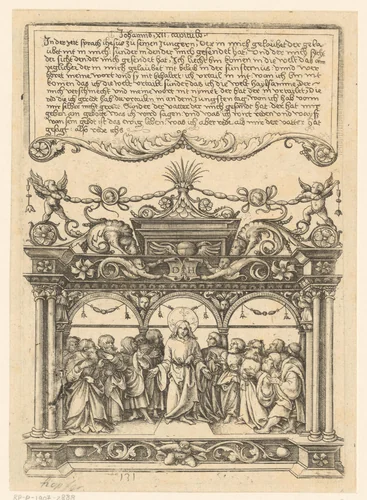 Johannis · XII · capitulo
In der zeit sprach ihesus zu seinen iungern · Der in mich gelaubt der gela
ubt nit in mich sunder in den der mich gesendet hat · Und der mich sicht
der sicht den der mich gesendet hat · Ich liecht bin komen in die welt das ain
yeglicher der in mich gelaubet nit bleib in der finsternus · Unnd wer
horet meine wort und so nit behaltet ich urtail in nit wan ich bin nit
komen das ich die welt urtail sunder das ich die welt der
mich verschmecht und meine wort nit nymet der hat der in vertailet · Die
red die ich geredt hab die urtailen in an dem jungsten tag won ich hab von
mir selbs nicht geredt Sunder der vatter der mich gesandt hat der hat mir
geben ain gebotte was ich werd sagen und was ich wirt reden und wayss
wan sein gebot ist das ewig leben was ich aber red als mir der vatter hat
gesagt · also rede ichs
D H